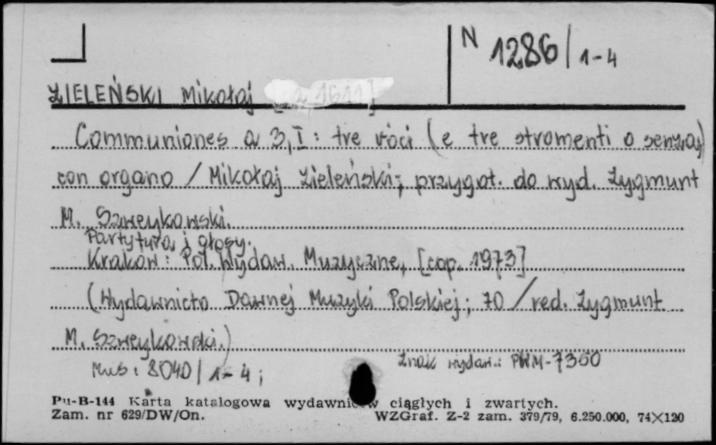 N 1286/1-4
ZIELEŃSKI Mikołaj [a 1611]
Communiones a 3, I : tre voci (e tre stromenti o senza)
con organo / Mikołaj Zieleński; przygot. do wyd. Zygmunt
M. Szweykowski.
Partytura i głosy.
Kraków : Pol. Wydaw. Muzyczne, [cop. 1973]
(Wydawnicto Dawnej Muzyki Polskiej; 70 / red. Zygmunt
M. Szweykowski.)
Mus : 8040/1-4; Znak wydaw.: PWM-7350
Pu-B-144 Karta katalogowa wydawnictw ciągłych i zwartych.
Zam. nr 629/DW/On. WZGraf. Z-2 zam. 379/79, 6.250.000, 74×120